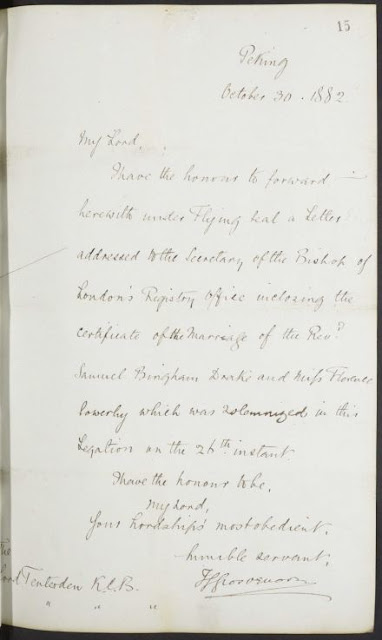 15
Peking
October 30. 1882
My Lord,
I have the honour to forward
herewith under Flying seal a Letter
addressed to the Secretary of the Bishop of
London's Registry Office inclosing the
certificate of the Marriage of the Revd.
Samuel Bingham Drake and Miss Florence
Sowerby which was solemnized in this
Legation on the 26th instant
I have the honour to be,
My Lord,
Your Lordship's most obedient,
humble servant,
TGGrosvenor
The
Lord Tenterden K.C.B.
" " "